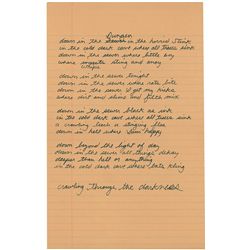 Dungeon
down in the sewer in the horrid stink
in the cold dark cave where all things sink
down in the sewer where little boy
where maggots sting and
down in the sewer tonight
down in the sewer where rats bite
down in the sewer I get my kicks
where dirt and slime and
down in the sewer black as ink
in the cold dark cave where all things sink
a crawling leech a stinging flea
down in hell where I'm happy
down beyond the light of day
down in the sewer all things decay
deeper than hell or anything
in the cold dark cave where bats cling
crawling through the darkness